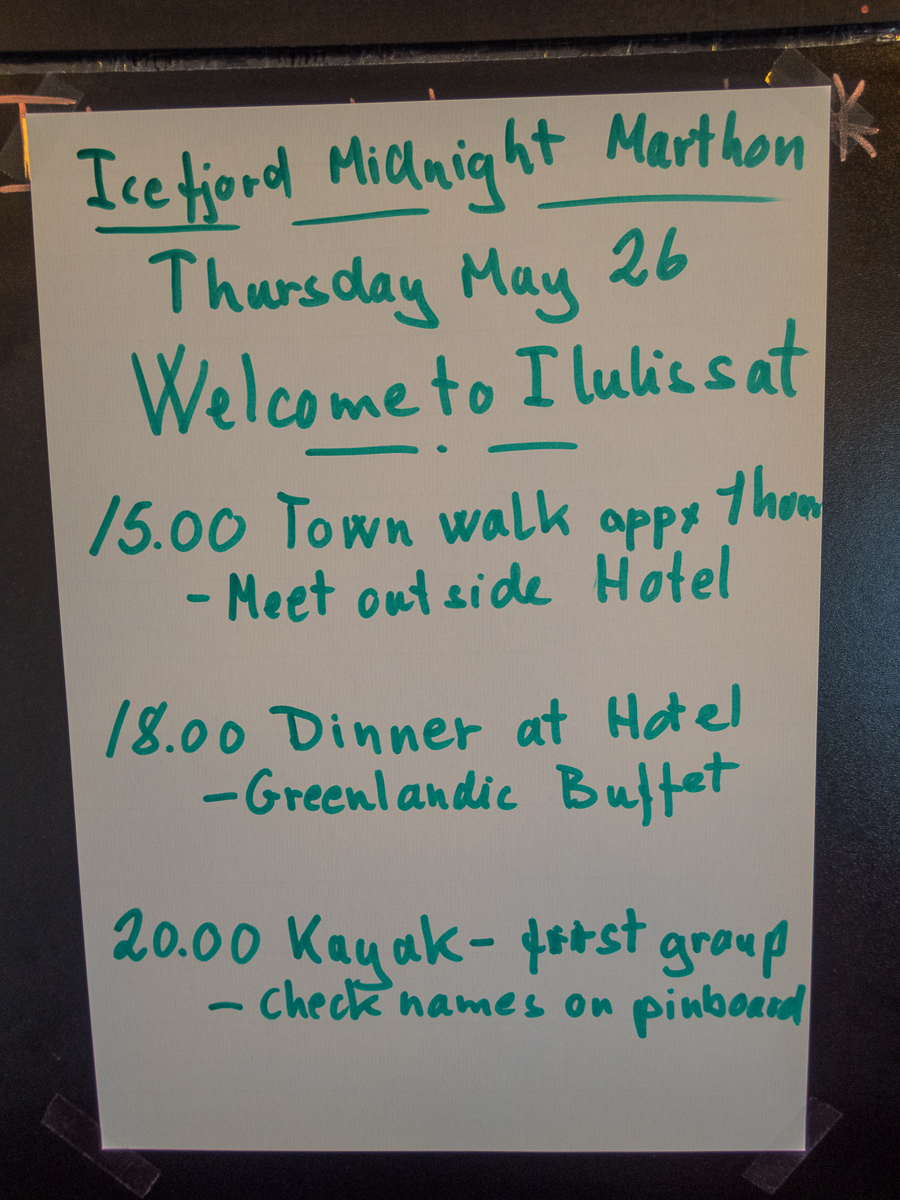 Icefjord Midnight Marthon
Thursday May 26
Welcome to Ilulissat
15.00 Town walk appx 1hour
- Meet outside Hotel
18.00 Dinner at Hotel
- Greenlandic Buffet
20.00 Kayak - first group
- Check names on pinboard